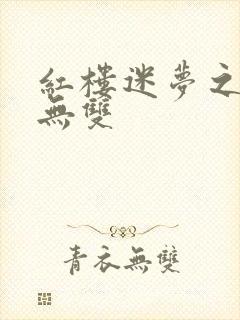 紅樓迷夢之
無雙
青衣無雙